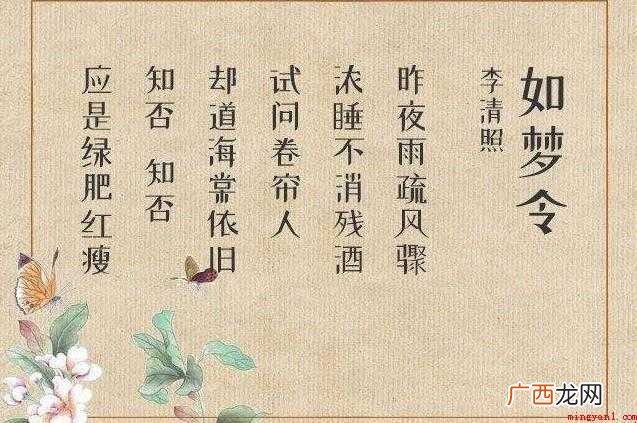 如梦令
李清照
昨夜雨疏风骤
浓睡不消残酒
试问卷帘人
却道海棠依旧
知否 知否
应是绿肥红瘦
广西龙网
mingyan1.com